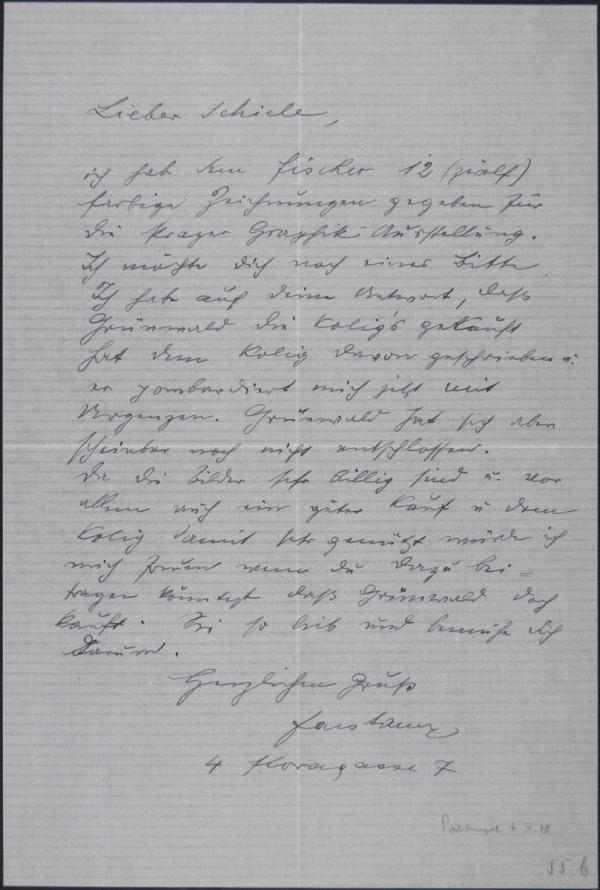 Lieber Schiele,
ich hab dem Fischer 12 (zwölf)
farbige Zeichnungen gegeben für
die Prager Graphik Ausstellung.
Ich möchte dich noch eines bitten
Ich habe auf deine Antwort, daß
Grünwald die Kolig's gekauft
hat dem Kolig davon geschrieben u.
er bombardiert mich jetzt mit
Urgenzen. Grünwald hat sich aber
scheinbar noch nicht entschlossen.
Da die Bilder sehr billig sind u. vor
allem auch ein guter Kauf u dem
Kolig damit sehr genützt würde ich
mich freuen wenn du dazu bei=
tragen könntest daß Grünwald doch
kauft. Sei so lieb und bemühe dich
darum.
Herzlichen Gruß
Faistauer
4 Floragasse 7
Poststempel 6 V. 18
55 b